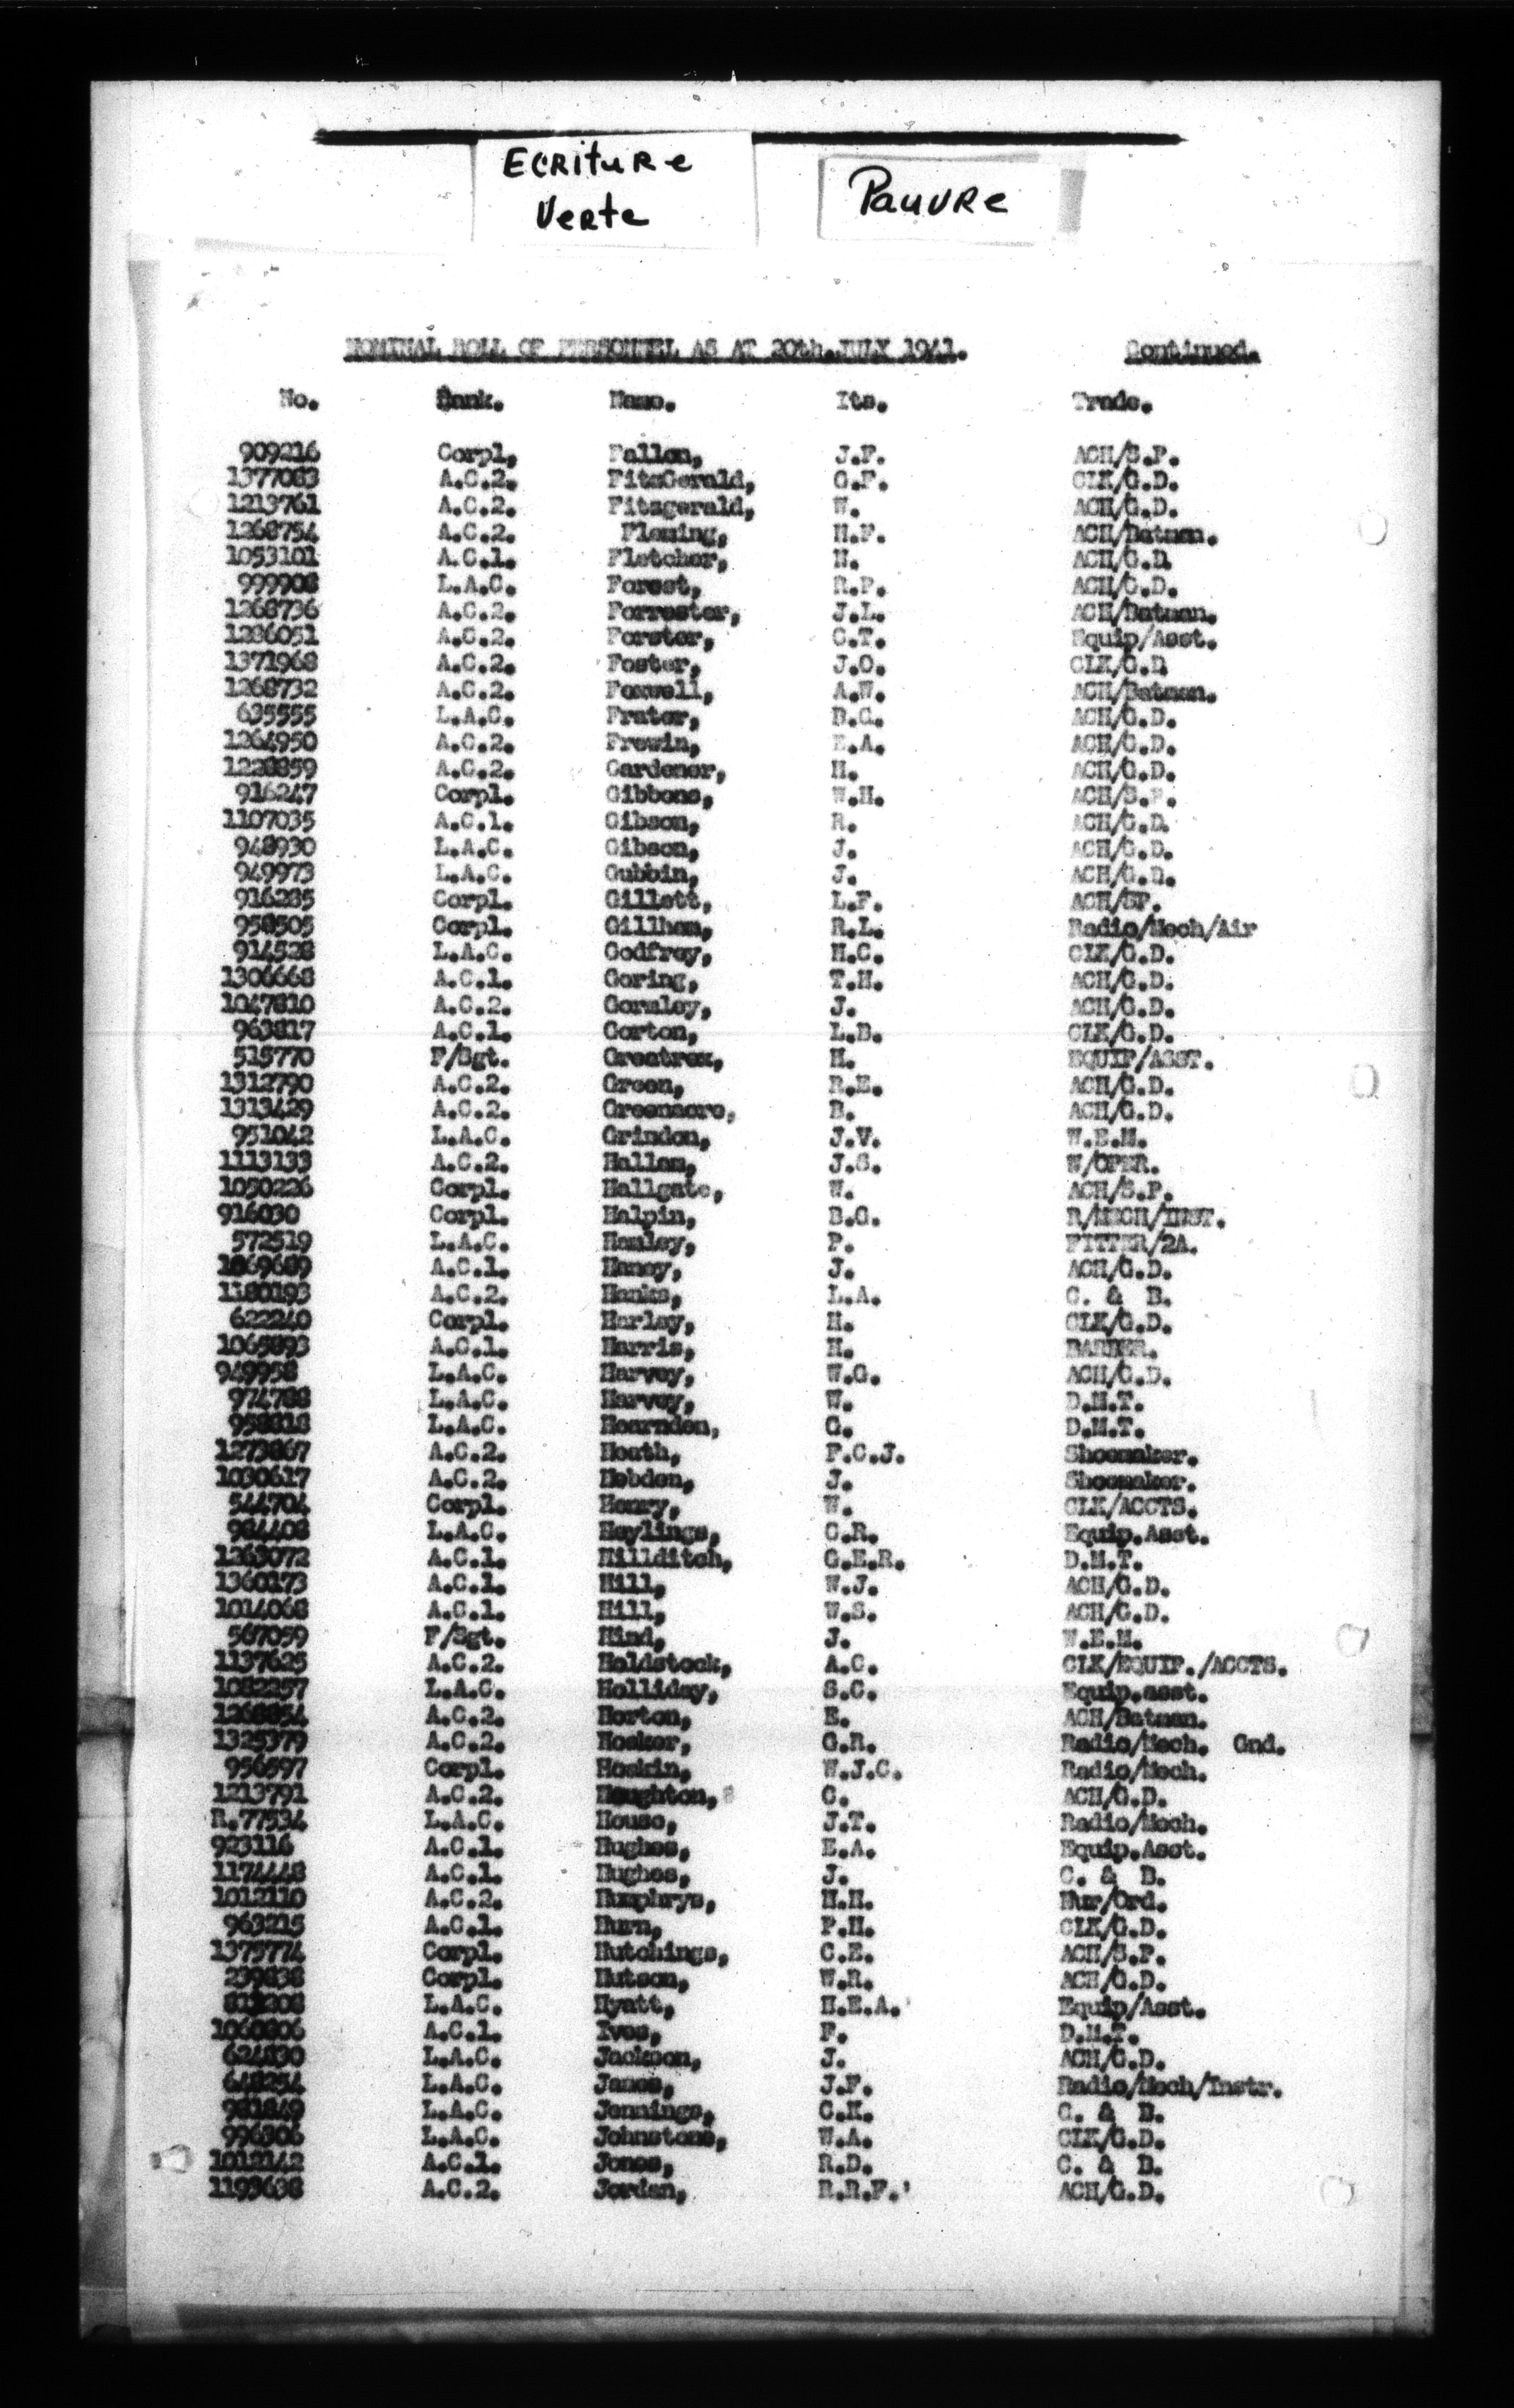 Ecriture
Verte
Pauvre
NOMINAL ROLL OF PERSONNEL AS AT 20th.JULY 1941. Continued.
No. Rank. Name. Its. Trade.
909216 Corpl, Fallon, J.F. ACH/S.P.
1377083 A.C.2. FitzGerald, G.F. CLK/G.D.
1213761 A.C.2. Fitzgerald, W. ACH/G.D.
1268754 A.C.2. Fleming, H.F. ACH/Batman.
1053101 A.C.1. Fletcher, H. ACH/G.D.
999908 L.A.C. Forest, R.P. ACH/G.D.
1268736 A.C.2. Forrester, J.L. ACH/Batman.
1286051 A.C.2. Forster, C.T. Equip/Asst.
1371968 A.C.2. Foster, J.O. CLK/G.D
1268732 A.C.2. Foxwell, A.W. ACH/Batman.
635555 L.A.C. Frater, B.G. ACH/G.D.
1264950 A.C.2. Frewin, E.A. ACH/G.D.
1228859 A.C.2. Gardener, H. ACH/G.D.
916247 Corpl. Gibbons, W.H. ACH/S.P.
1107035 A.C.1. Gibson, R. ACH/G.D.
948930 L.A.C. Gibson, J. ACH/G.D.
949973 L.A.C. Gubbin, J. ACH/G.D.
916285 Corpl. Gillett, L.F. ACH/SP.
958505 Corpl. Gillham, R.L. Radio/Mech/Air
914528 L.A.C. Godfrey, H.C. CLK/G.D.
1306668 A.C.1. Goring, T.H. ACH/G.D.
1047810 A.C.2. Gormley, J. ACH/G.D.
963817 A.C.1. Gorton, L.B. CLK/G.D.
515770 F/Sgt. Greatrex, H. EQUIP/ASST.
1312790 A.C.2. Green, R.E. ACH/G.D.
1313429 A.C.2. Greenacre, B. ACH/G.D.
951042 L.A.C. Grindon, J.V. W.E.M.
1113133 A.C.2. Hallam, J.S. W/OPER.
1050226 Corpl. Hallgate, W. ACH/S.P.
916030 Corpl. Halpin, B.G. R/MECH/INST.
572519 L.A.C. Hanley, P. FITTER/2A.
1069689 A.C.1. Haney, J. ACH/G.D.
1180193 A.C.2. Hanks, L.A. C. & B.
622240 Corpl. Harley, H. CLK/G.D.
1065893 A.C.1. Harris, H. BARBER.
949958 L.A.C. Harvey, W.G. ACH/G.D.
974788 L.A.C. Harvey, W. D.M.T.
958818 L.A.C. Hearnden, G. D.M.T.
1273867 A.C.2. Heath, F.C.J. Shoemaker.
1030617 A.C.2. Hebden, J. Shoemaker.
544704 Corpl. Henry, W. CLK/ACCTS.
984408 L.A.C. Heylings, C.R. Equip.Asst.
1263072 A.C.1. Hillditch, G.E.R. D.M.T.
1360173 A.C.1. Hill, W.J. ACH/G.D.
1014068 A.C.1. Hill, W.S. ACH/G.D.
567059 F/Sgt. Hind, J. W.E.M.
1137625 A.C.2. Holdstock, A.C. CLK/EQUIP./ACCTS.
1082257 L.A.C. Holliday, S.C. Equip.asst.
1268854 A.C.2. Horton, E. ACH/Batman.
1325379 A.C.2. Hosker, G.R. Radio/Mech. Gnd.
956597 Corpl. Hoskin, W.J.C. Radio/Mech.
1213791 A.C.2. Houghton, C. ACH/G.D.
R.77534 L.A.C. House, J.T. Radio/Mech.
923116 A.C.1. Hughes, E.A. Equip.Asst.
1174448 A.C.1. Hughes, J. C. & B.
1012110 A.C.2. Humphrys, H.H. Nur/Ord.
963215 A.C.1. Hurn, P.H. CLK/G.D.
1375774 Corpl. Hutchings, C.E. ACH/S.P.
239838 Corpl. Hutson, W.R. ACH/G.D.
L.A.C. Hyatt, H.E.A. Equip/Asst.
1060806 A.C.1. Ives, F. D.M.T.
624830 L.A.C. Jackson, J. ACH/G.D.
648254 L.A.C. James, J.F. Radio/Mech/Instr.
981849 L.A.C. Jennings, C.K. C. & B.
996306 L.A.C. Johnstone, W.A. CLK/G.D.
1012142 A.C.1. Jones, R.D. C. & B.
1193638 A.C.2. Jordan, R.R.F. ACH/G.D.